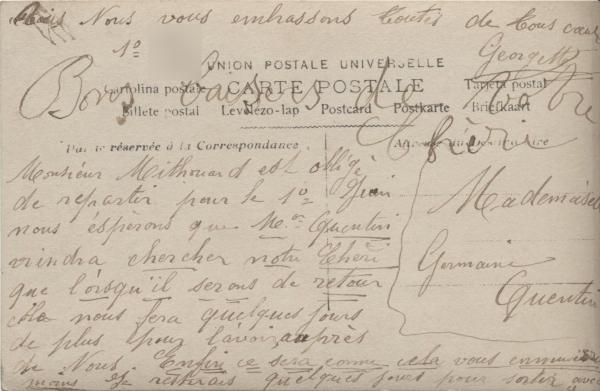 Nous vous embrassons toutes de tous coeur
1º
Georgette
UNION POSTALE UNIVERSELLE
CARTE POSTALE
Cartolina postale
Tarjeta postal
Bons Baisers de Votre
Billete postal Levelezo-lap Postcard Postkarte Briefkaart
Chérie
Partie réservée à la Correspondance
Monsieur Mithouard est obligé
de repartir pour le 1º Juin
nous éspèrons que Me. Quentin
viendra chercher notre Chéri
que lorsqu'il serons de retour
cela nous fera quelques jours
de plus pour l'avoir auprès
de Nous. Enfin ce sera comme cela vous
moins Je resterais quelques jours pour sortir avec
Mademoiselle
Germaine
Quentin